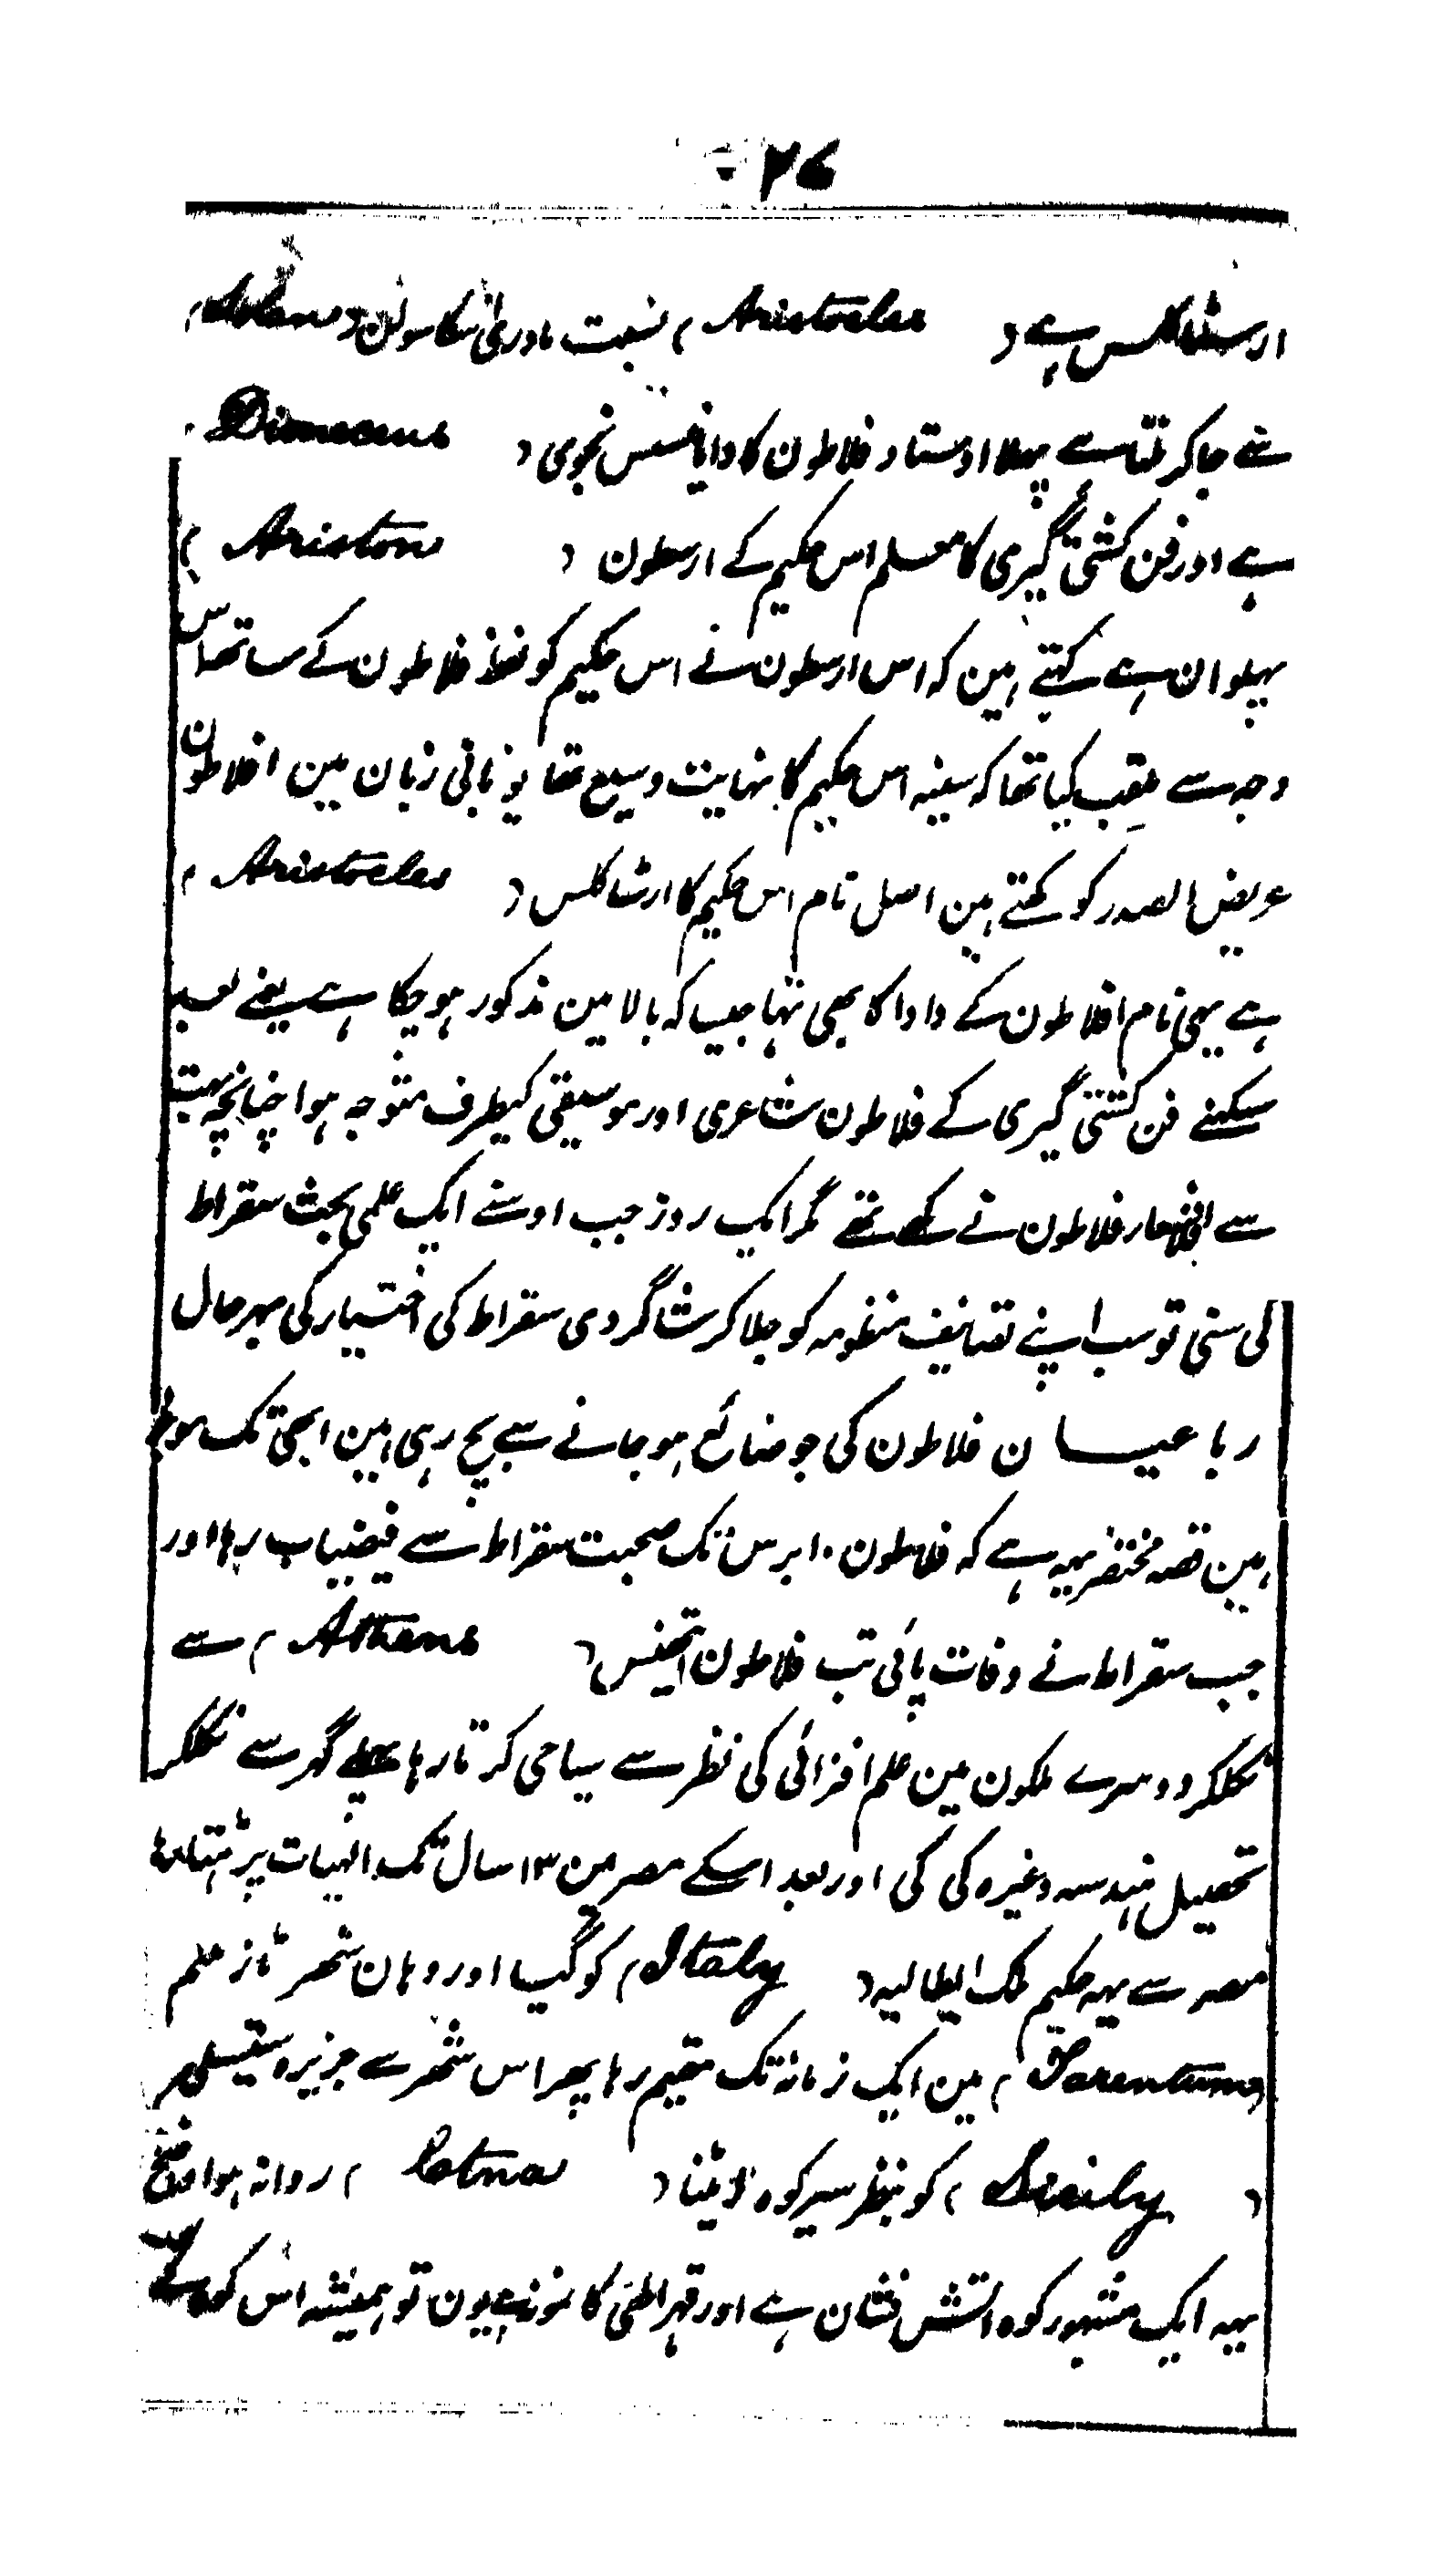 ۲۶
ارسٹاکلس ہے ( Aristocles ) نسبت مادری اسکا سولن ( Solon )
سے جا کر لتا ہے پہلا اوستاد فلاطون کا دایانیسس نجومی (
ہے اور فن کشتی گیری کا معلم اس حکیم کے ارسطون ( Ariston )
پہلوان ہے کہتے ہین کہ اس ارسطون نے اس حکیم کو لفظ فلاطون کے ساتھ اس
وجہ سے ملقب کیا تھا کہ سینہ اس حکیم کا نہایت وسیع تھا یونانی زبان مین افلاطون
عریض الصدر کو کہتے ہین اصل نام اس حکیم کا ارسٹاکلس ( Aristocles )
ہے یہی نام افلاطون کے دادا کا بھی تہا جیسا کہ بالا مین مذکور ہو چکا ہے یعنے بعد
سیکہنے فن کشتی گیری کے فلاطون شاعری اور موسیقی کیطرف متوجہ ہوا چنانچہ بہت
سے اشعار فلاطون نے لکھے تھے مگر ایک روز جب اوسنے ایک علمی بحث سقراط
کی سنی تو سب اپنے تصانیف منظومہ کو جلا کر شاگردی سقراط کی اختیار کی بہرحال
رباعیان فلاطون کی جو ضائع ہو جانے سے بچ رہی ہین ابھی تک موجود
ہین قصہ مختصر یہہ ہے کہ فلاطون ۱۰ برس تک صحبت سقراط سے فیضیاب رہا اور
جب سقراط نے وفات پائی تب فلاطون اتھینس ( Athens ) سے
نکلکر دوسرے ملکون مین علم افزائی کی نظر سے سیاحی کرتا رہا پہلے گھر سے نکلکر
تحصیل ہندسہ وغیرہ کی کی اور بعد اسکے مصر مین ۱۳ سال تک الہیات پڑہتا رہا
مصر سے یہہ حکیم ملک ایطالیہ ( Italy ) کو گیا اور وہان شہر ٹارنٹم
( Tarentum ) مین ایک زمانہ تک مقیم رہا پھر اس شہر سے جزیرہ سیسلی
( Sicily ) کو بنظر سیر کوہ اٹینا ( Etna ) روانہ ہوا واضح
یہہ ایک مشہور کوہ اتش فشان ہے اور قہر الہی کا نمونہ ہے یون تو ہمیشہ اس کوہ سے